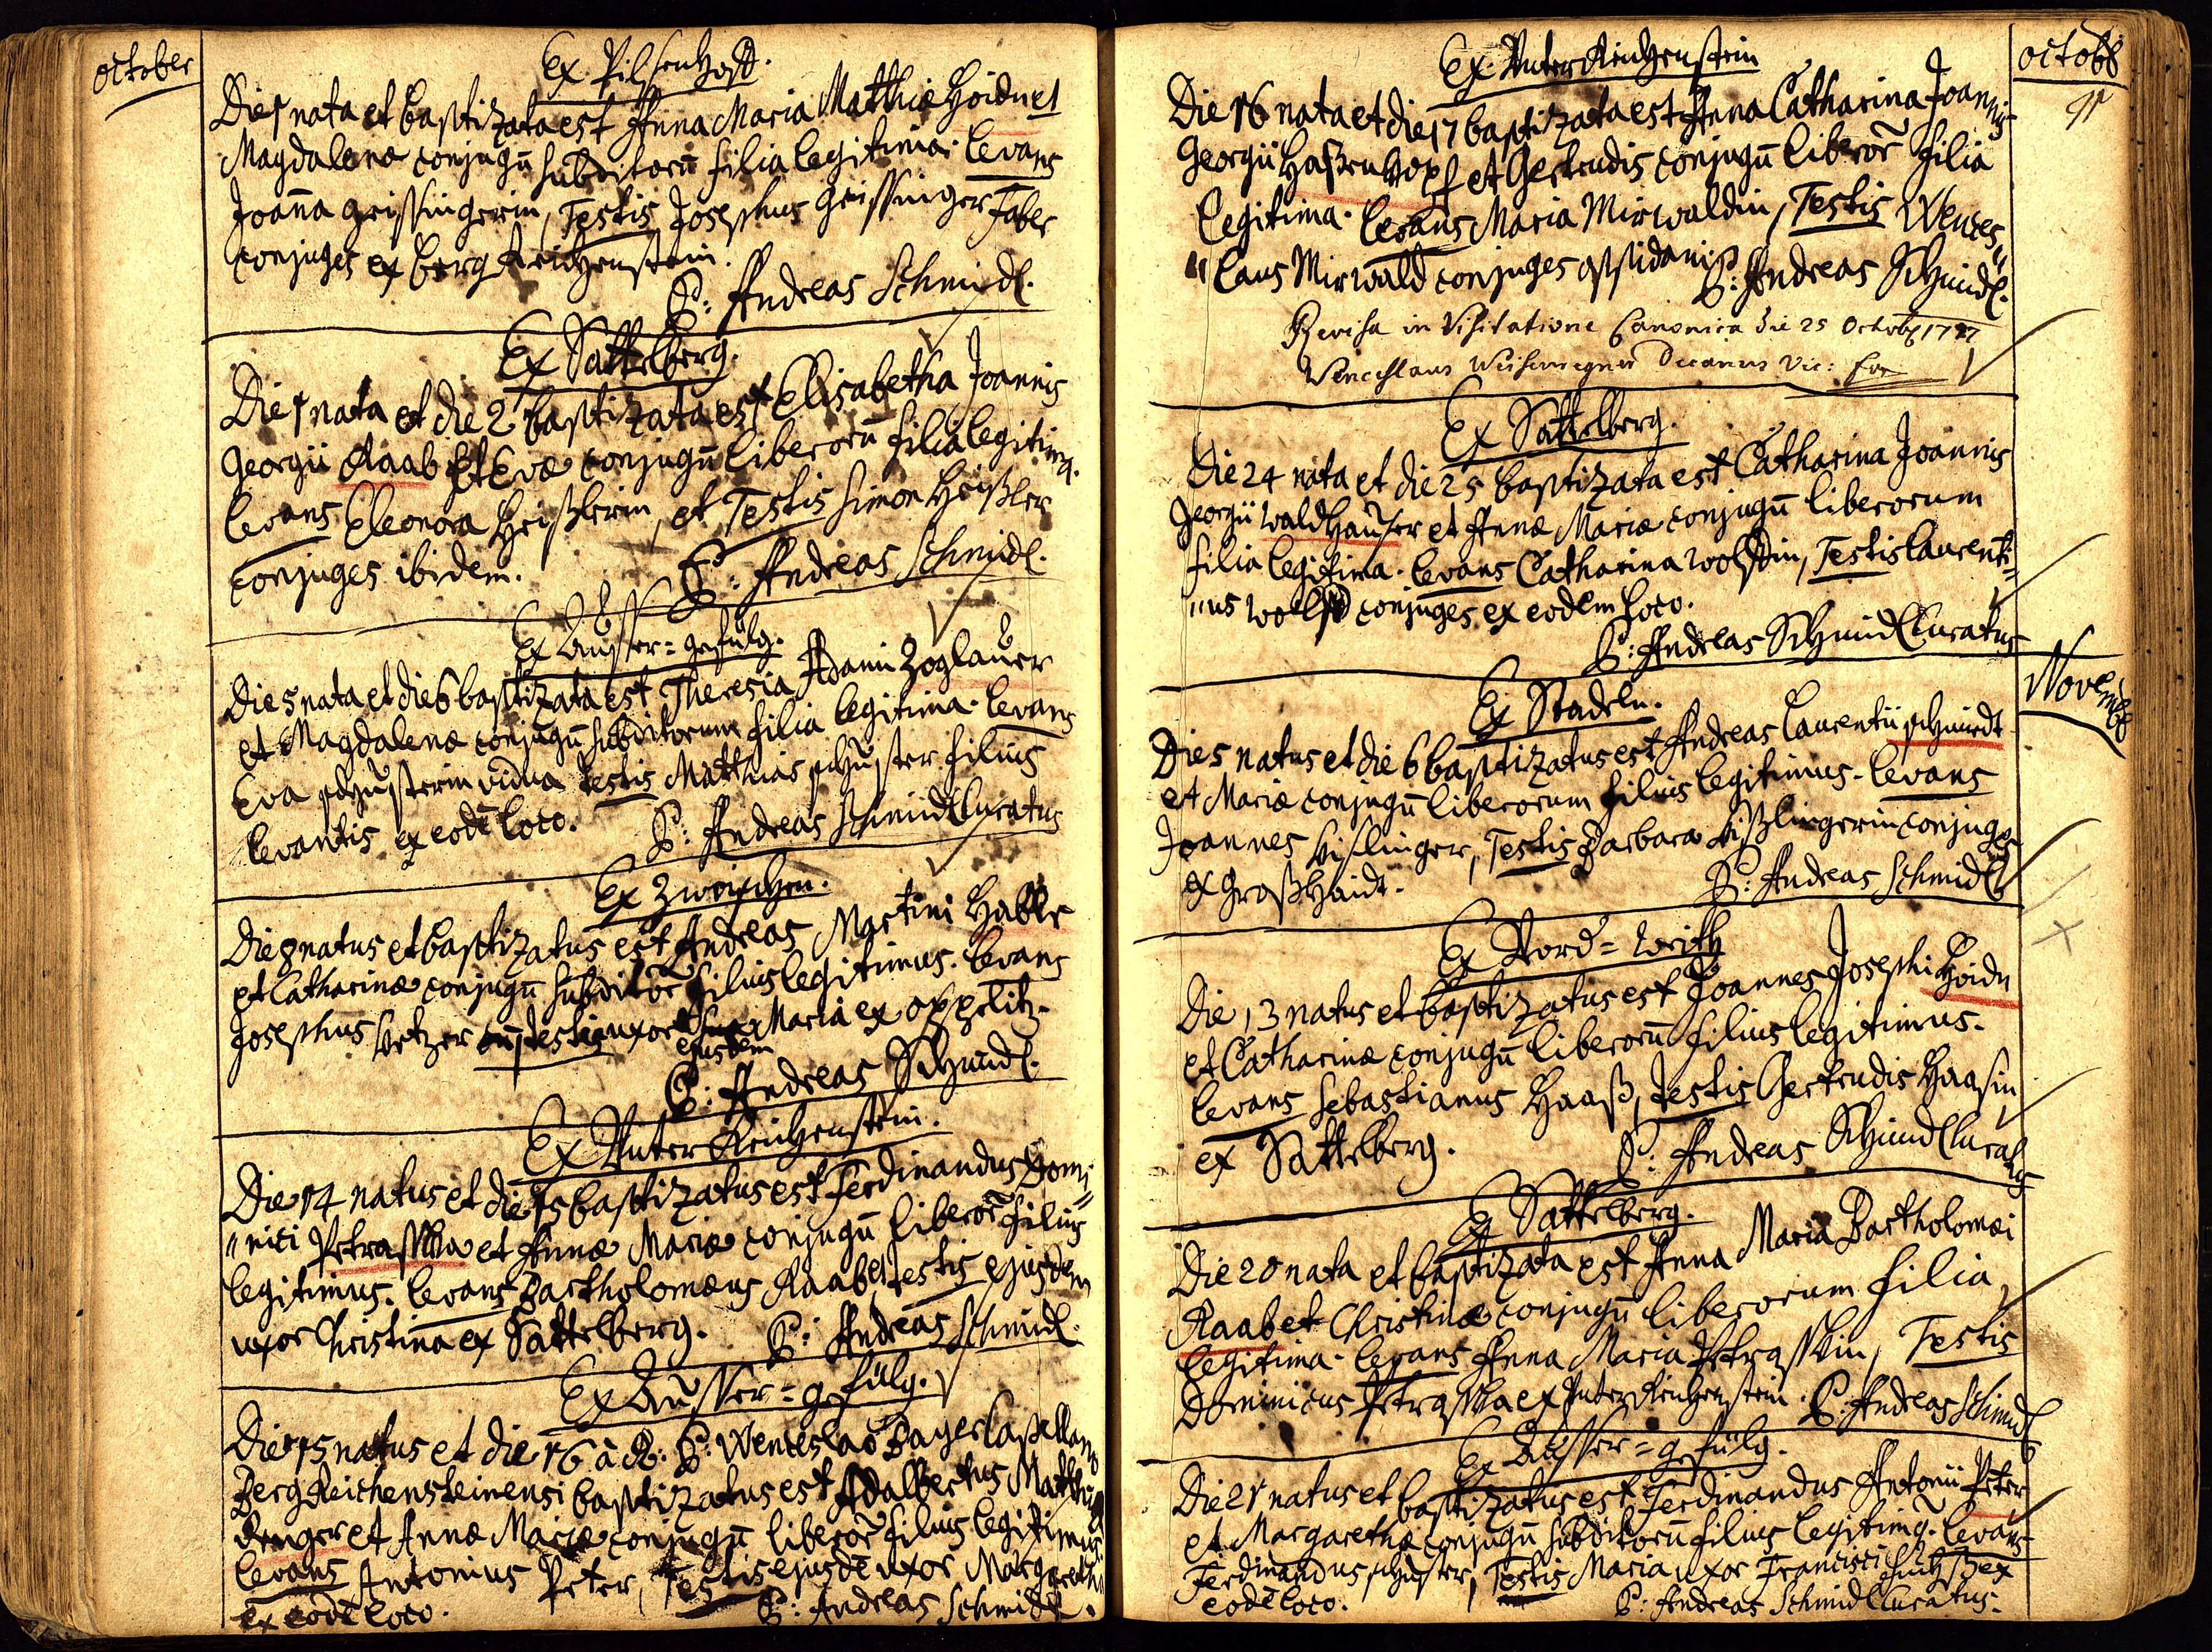 october
Ex Pilsenhoff.
Die 1 nata et baptizata est Anna Maria Matthiæ Hoidn et
Magdalenæ conjugū subditorū filia legitima. Levans
Joaña Grissingerin, Testis Josephus Grissinger Faber
conjuges ex Berg Reichenstein.
P: Andreas Schmidl.
Ex Sattelberg.
Die 1 nata et die 2 baptizata est Elisabetha Joannis
Georgii Raab et Evæ conjugū liberorū filia legitima.
Levans Eleonora Heißlerin, et Testis Simon Heißler
conjuges ibidem.
P: Andreas Schmidl.
Ex Ausser=gefülg.
Die 5 nata et die 6 baptizata est Theresia Adami Zoglauer
et Magdalenæ conjugū subditorum filia legitima. Levans
Eva schusterin vidua Testis Matthias schuster filius
Levantis ex eodē loco.
P: Andreas Schmidl Curatus
Ex Zwoischen.
Die 8 natus et baptizatus est Andreas Martini Habler
et Catharinæ conjugū subditor̄ filius legitimus. Levans
Josephus Vetzer cū testis uxore Maria ex Oppelitz.
ejusdem
P: Andreas Schmidl.
Ex Unter Reichenstein.
Die 14 natus et die 15 baptizatus est Ferdinandus Domi=
"nici Petraschka et Annæ Mariæ conjugū liberor̄ filius
legitimus. Levans Bartholomæus Raab, Testis ejusdem
uxor Christina ex Sattelberg.
P: Andreas Schmidl.
Ex Ausser=gefülg.
Die 15 natus et die 16 à R. P: Wenceslao Bayer Capellano
Berg Reichensteinensi baptizatus est Adalbertus Matthiæ
Renger et Annæ Mariæ conjugū liberor̄ filius legitimus.
Levans Antonius Peter, Testis ejusdē uxor Margaretha
ex eodē loco.
P: Andreas Schmidl.
octobr
Ex Unter Reichenstein
Die 16 nata et die 17 baptizata est Anna Catharina Joannis
Georgii Haßenkopf et Gertrudis conjugū liberor̄ filia
Legitima. Levans Maria Mirwaldin, Testis Wences=
"laus Mirwald conjuges oppidani
P: Andreas Schmidl.
Revisa in Visitatione Canonica die 25 Octobr 1777
Wenceslaus Decanus Vic: For
Ex Sattelberg.
Die 24 nata et die 25 baptizata est Catharina Joannis
Georgii Waldhauser et Annæ Mariæ conjugū liberorum
filia legitima. Levans Catharina Wolfin, Testis Laurenti=
"us Wolf conjuges ex eodem loco.
P: Andreas Schmidl Curatus
Novembr
Ex Stadeln.
Die 5 natus et die 6 baptizatus est Andreas Laurentii schmidt
et Mariæ conjugū liberorum filius legitimus. Levans
Joannes Kislinger, Testis Barbara Kißlingerin conjuges
ex Großhaidt.
P: Andreas Schmidl
Ex Vord=
Die 13 natus et baptizatus est Joannes Josephi Hoidn
et Catharinæ conjugū liberorū filius legitimus.
Levans Sebastianus Haaß, Testis Gertrudis Haasin
ex Sattelberg.
P: Andreas Schmidl Curatus
Ex Sattelberg.
Die 20 nata et baptizata est Anna Maria Bartholomæi
Raab et Christinæ conjugū liberorum filia
legitima. Levans Anna Maria Petraschkin, Testis
Dominicus Petraschka ex Unter Reichenstein. P: Andreas Schmidl
Ex Ausser=gefülg.
Die 21 natus et baptizatus est Ferdinandus Antonii Peter
et Margarethæ conjugū subditorū filius legitimq. Levans
Ferdinandus schuster, Testis Maria uxor Francisci ex
eodē loco.
P: Andreas Schmidl Curatus.